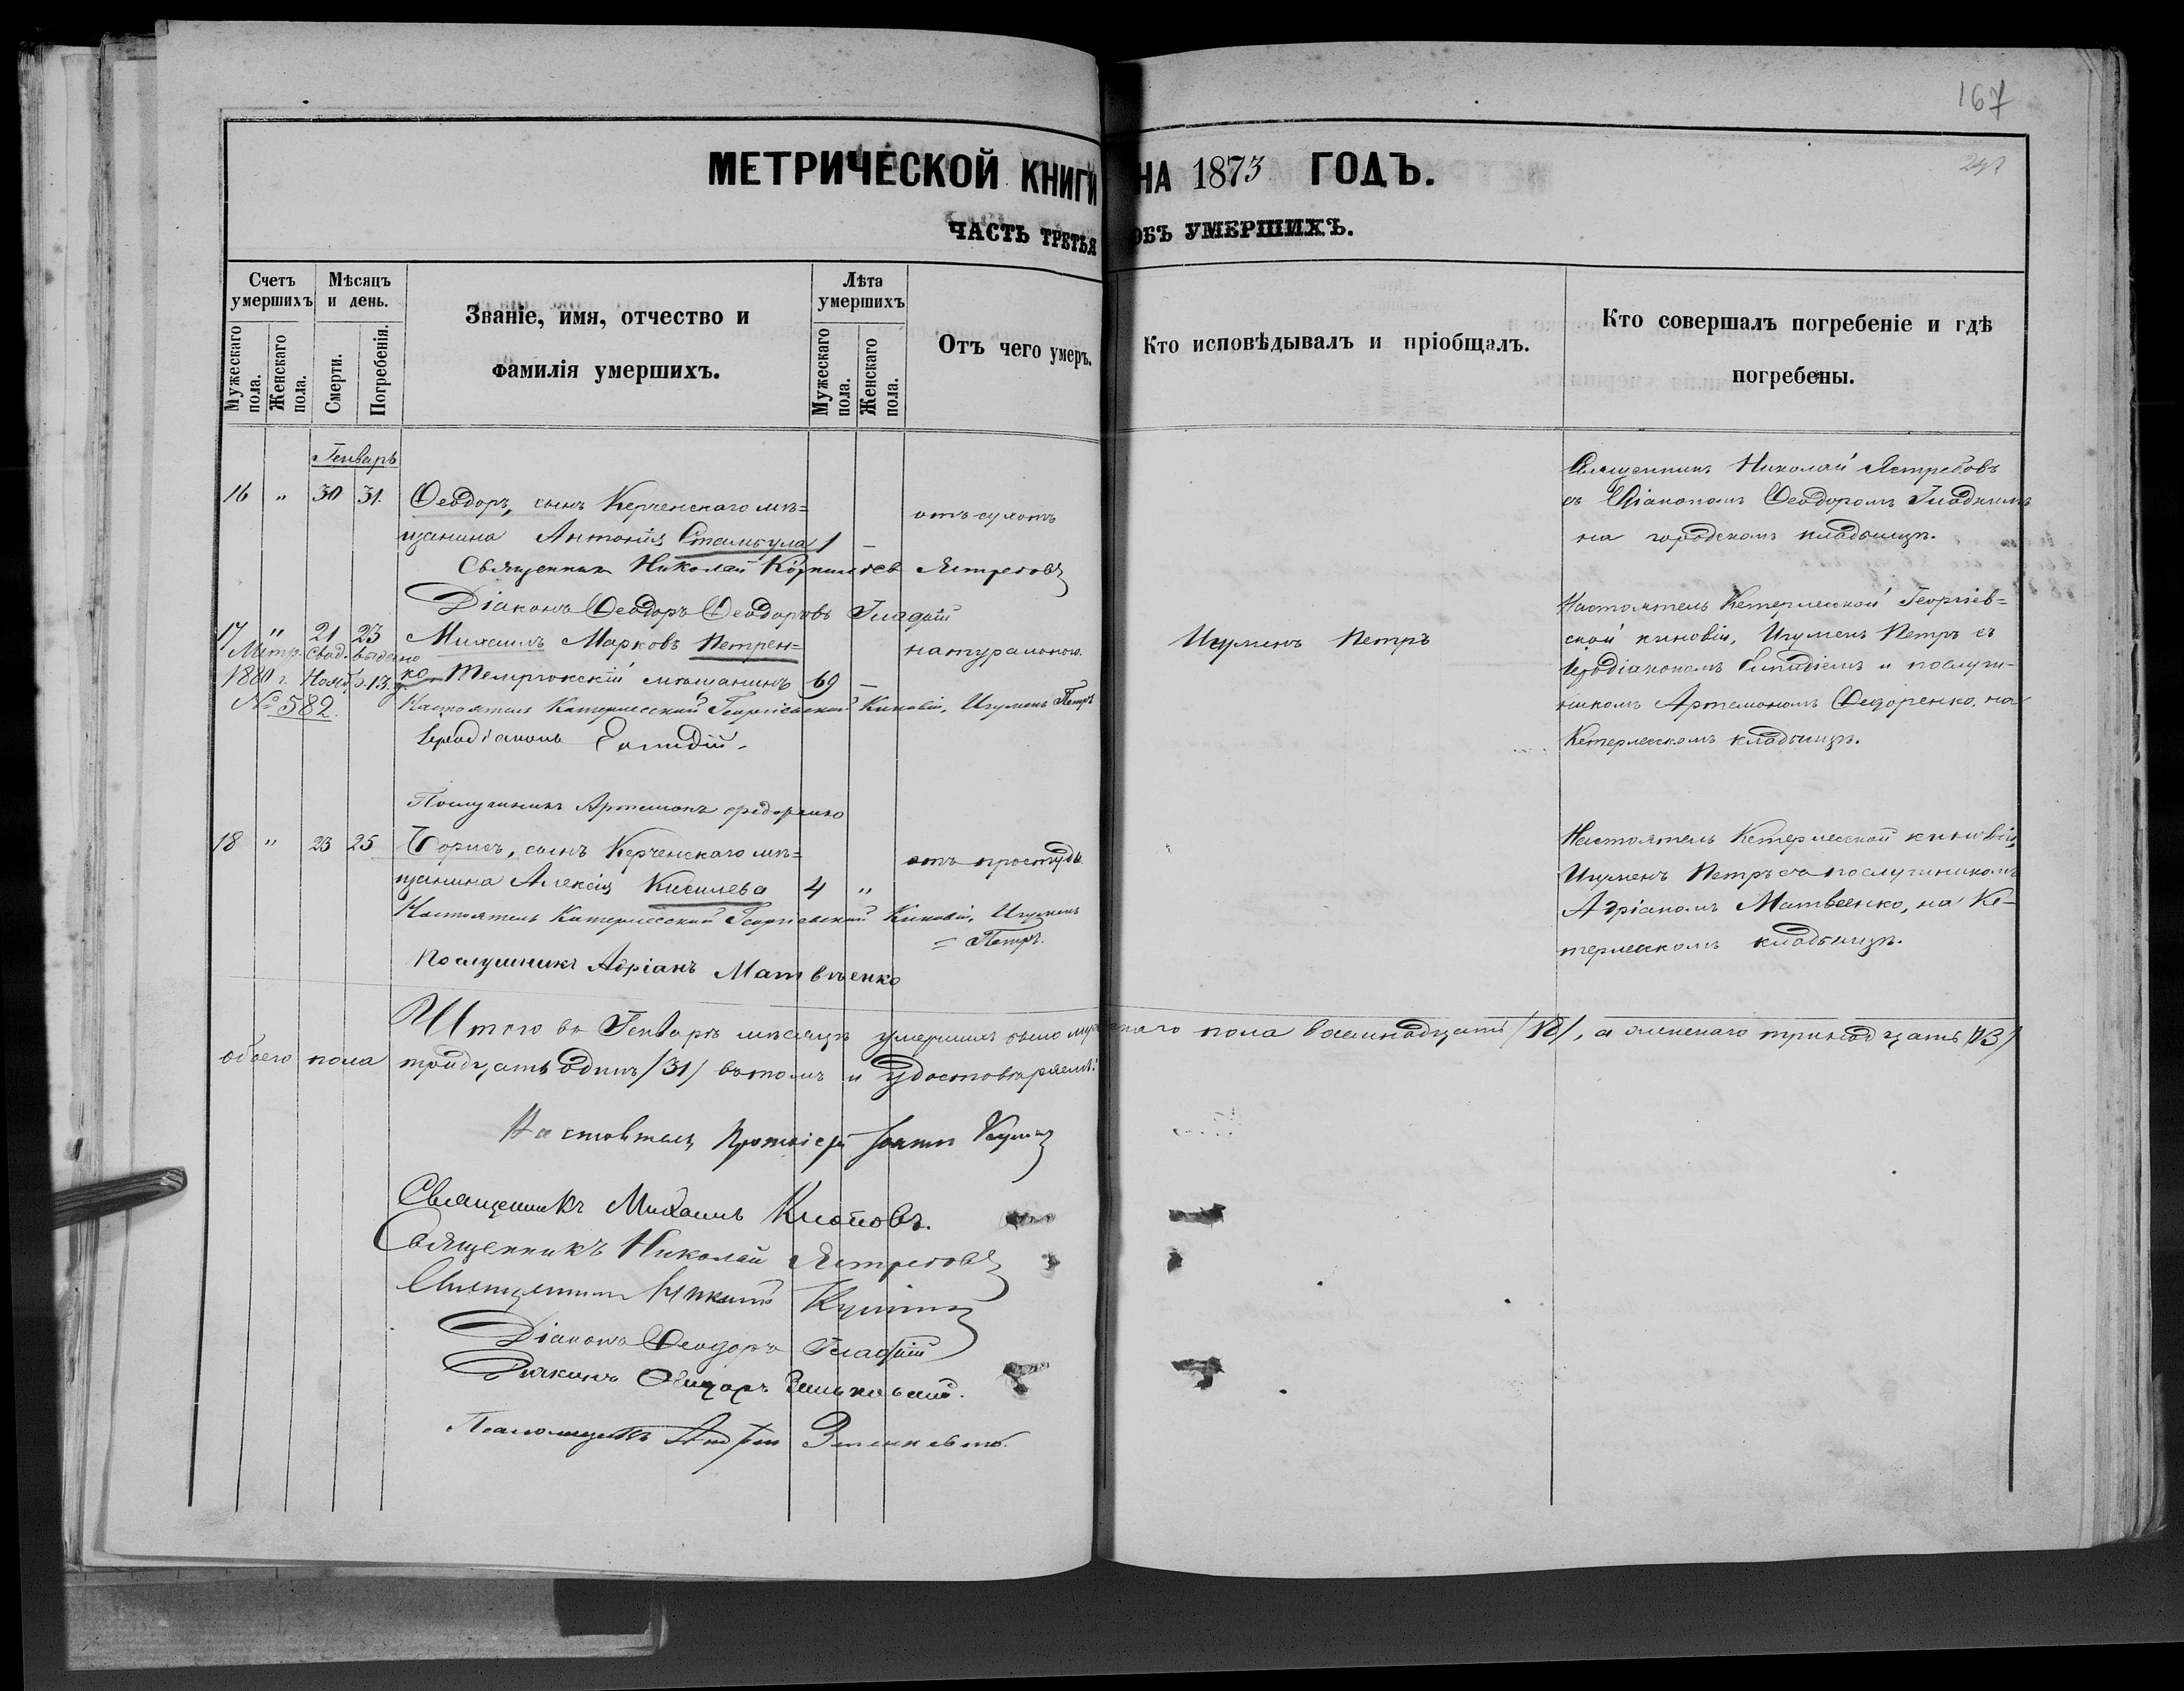 167
МЕТРИЧЕСКОЙ КНИГИ НА 1873 ГОДЪ.
ЧАСТЬ ТРЕТЬЯ ОБЪ УМЕРШИХЪ.
Счетъ умершихъ
Мужескаго пола.
Женскаго пола.
Мѣсяцъ и день.
Смерти.
Погребенія.
Званіе, имя, отчество и
фамилія умершихъ.
Лѣта умершихъ
Мужескаго пола.
Женскаго пола.
Отъ чего умеръ.
Кто исповѣдывалъ и пріобщалъ.
Кто совершалъ погребеніе и гдѣ
погребены.
Генварь
16 " 30 31. Ѳеодоръ, сынъ Керченскаго мѣ=
щанина Антонія Стамбула 1 –
отъ сухотъ
Священникъ Николай Ястребовъ
съ Діакономъ Ѳеодоромъ Гладкимъ
на городскомъ кладбищѣ.
Священникъ Николай Корнильев Ястребовъ
Діаконъ Ѳеодоръ Ѳеодоровъ Гладкій
17 " 21 23 Михаилъ Марковъ Петрен=
ко, Темрюкскій мѣщанинъ 69 –
натуральною.
Игуменъ Петръ
Настоятель Кетерлесской Георгіев=
ской киновіи, Игуменъ Петръ съ
Іеродіакономъ Елпидіемъ и послуш-
никомъ Артемономъ Ѳедоренко, на
Кетерлескомъ кладбищѣ.
Метр. свид. выдано
1880 г. Нояб. 13.
№ 582.
Настоятель Катерлесской Георгіевской Киновіи, Игуменъ Петръ
Іеродіаконъ Елпидій.
Послушникъ Артемонъ Федоренко
18 " 23 25 Борисъ, сынъ Керченскаго мѣ=
щанина Алексія Киселева 4 "
отъ простуды.
Настоятель Кетерлесской киновіи,
Игуменъ Петръ съ послушникомъ
Адріаномъ Матвеенко, на Ке-
терлескомъ кладбищѣ.
Настоятель Катерлесской Георгіевской Киновіи, Игуменъ
= Петръ.
Послушникъ Адріанъ Матвѣенко
Итого въ Генварѣ мѣсяцѣ умершихъ было мужескаго пола восемнадцать /18/, а женскаго тринадцать /13/
обоего пола тридцать одинъ /31/ въ томъ и удостовѣряемъ:
Настоятель Протоіерей Іоаннъ
Священникъ Михаилъ Клоповъ.
Священникъ Николай Ястребовъ
Священникъ
Діаконъ Ѳеодоръ Гладкій